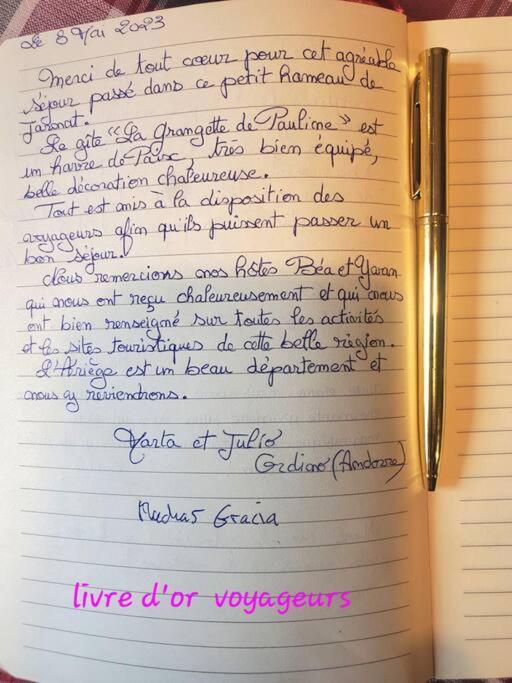 Le 8 Mai 2023
Merci de tout cœur pour cet agréable
séjour passé dans ce petit hameau de
Jarnat.
Le gîte "La Grangette de Pauline" est
un havre de Paix, très bien équipé,
belle décoration chaleureuse.
Tout est mis à la disposition des
voyageurs afin qu'ils puissent passer un
bon séjour.
Nous remercions nos hôtes Béa et
qui nous ont reçu chaleureusement et qui nous
ont bien renseigné sur toutes les activités
et les sites touristiques de cette belle région.
L'Ariège est un beau département et
nous y reviendrons.
Marta et Julio
Ordino (Andorre)
Muchas Gracia
livre d'or voyageurs